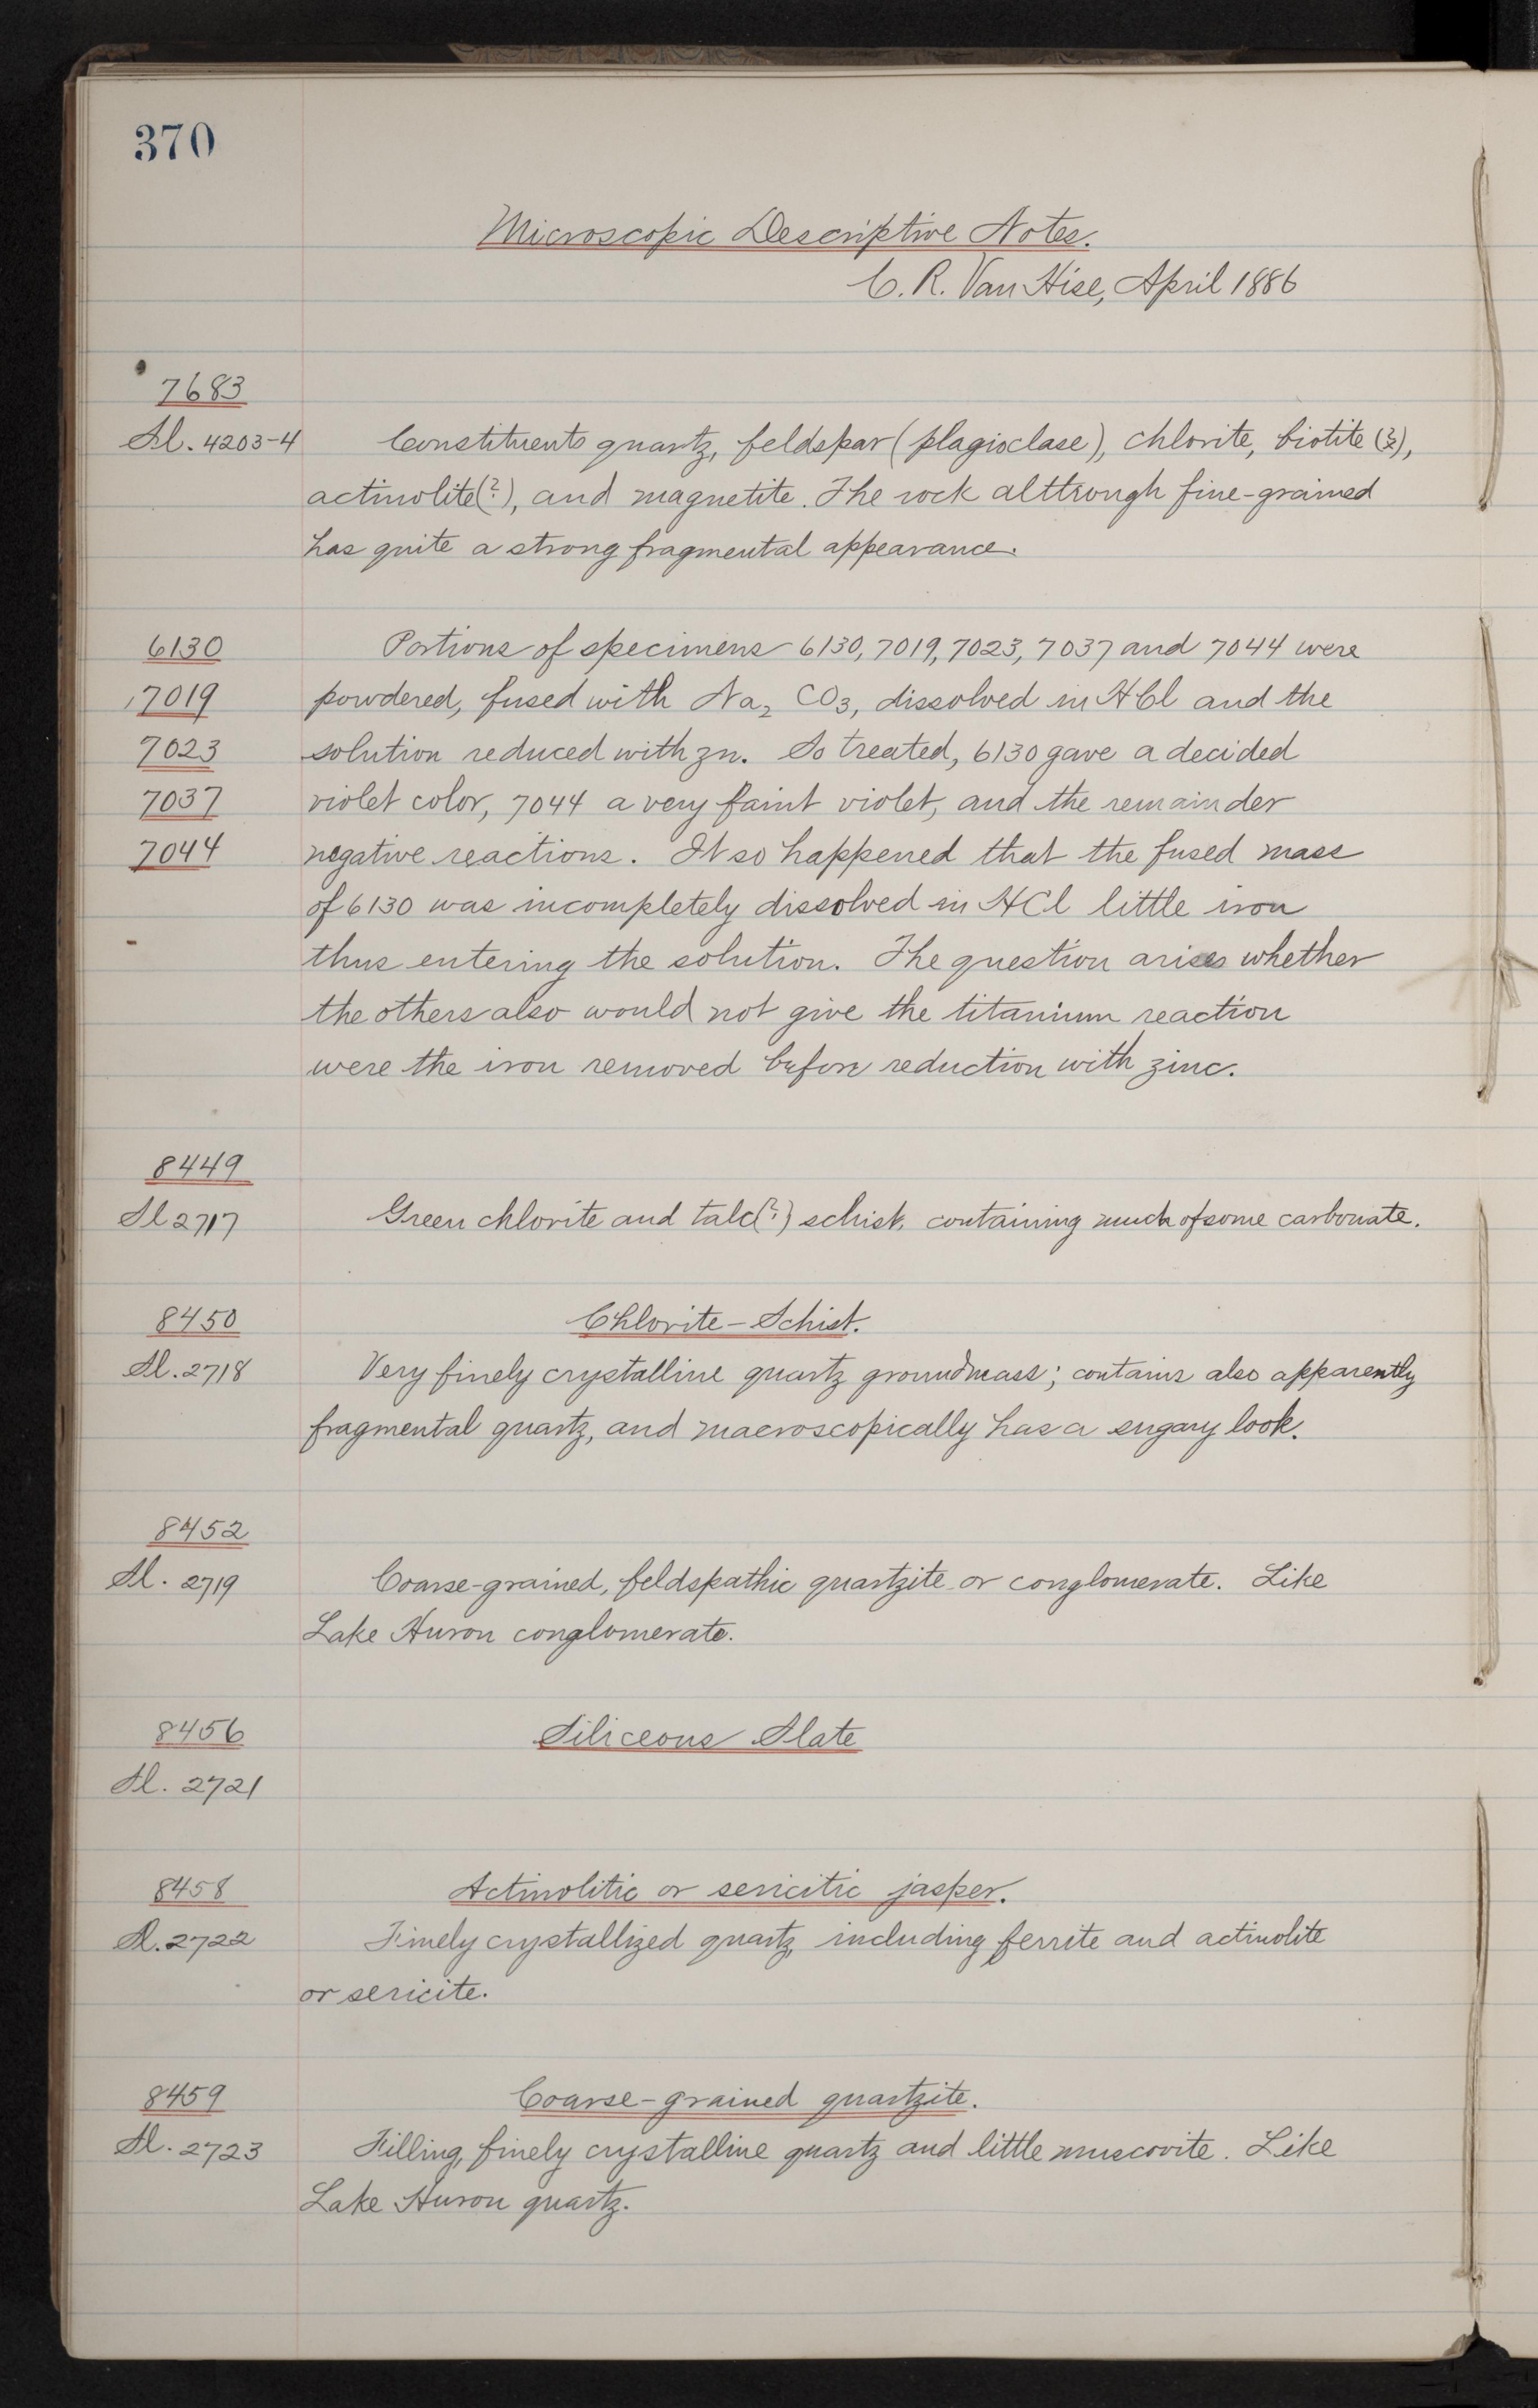 370
Microscopic Descriptive Notes.
C. R. Van Hise, April 1886
7683
Sl. 4203-4 Constituents quartz, feldspar (plagioclase), chlorite, biotite (?),
actinolite(?), and magnetite. The rock although fine-grained
has quite a strong fragmental appearance.
6130 Portions of specimens 6130, 7019, 7023, 7037 and 7044 were
7019 powdered, fused with Na2 CO3, dissolved in HCl and the
7023 solution reduced with zn. So treated, 6130 gave a decided
7037 violet color, 7044 a very faint violet, and the remainder
7044 negative reactions. It so happened that the fused mass
of 6130 was incompletely dissolved in HCl little iron
thus entering the solution. The question arises whether
the others also would not give the titanium reaction
were the iron removed before reduction with zinc.
8449
Sl 2717 Green chlorite and talc(?) schist, containing much of some carbonate.
8450 Chlorite-Schist.
Sl. 2718 Very finely crystalline quartz groundmass; contains also apparently
fragmental quartz, and macroscopically has a sugary look.
8452
Sl. 2719 Coarse-grained, feldspathic quartzite or conglomerate. Like
Lake Huron conglomerate.
8456 Siliceous Slate
Sl. 2721
8458 Actinolitic or sericitic jasper.
Sl. 2722 Finely crystallized quartz, including ferrite and actinolite
or sericite.
8459 Coarse-grained quartzite.
Sl. 2723 Filling, finely crystalline quartz and little muscovite. Like
Lake Huron quartz.